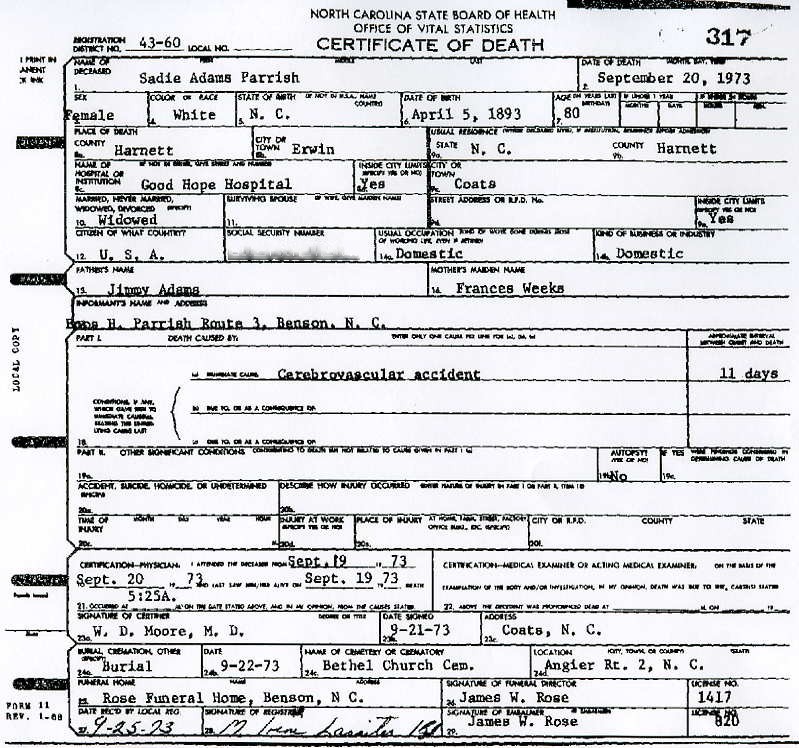 NORTH CAROLINA STATE BOARD OF HEALTH
OFFICE OF VITAL STATISTICS
CERTIFICATE OF DEATH
317
REGISTRATION DISTRICT NO. 43-60 LOCAL NO.
NAME OF DECEASED FIRST MIDDLE LAST DATE OF DEATH MONTH, DAY, YEAR
1. Sadie Adams Parrish 2. September 20, 1973
SEX COLOR OR RACE STATE OF BIRTH (IF NOT IN U.S.A., NAME COUNTRY) DATE OF BIRTH AGE (IN YEARS LAST BIRTHDAY) IF UNDER 1 YEAR MONTHS DAYS
Female 4. White 5. N. C. 6. April 5, 1893 7. 80
PLACE OF DEATH CITY OR TOWN USUAL RESIDENCE
COUNTY Harnett Erwin STATE N. C. COUNTY Harnett
8a. 8b. 9a. 9b.
NAME OF HOSPITAL OR INSTITUTION IF NOT IN EITHER, GIVE STREET AND NUMBER INSIDE CITY LIMITS (SPECIFY YES OR NO) CITY OR TOWN
8c. Good Hope Hospital 8d. Yes 9c. Coats
MARRIED, NEVER MARRIED, WIDOWED, DIVORCED (SPECIFY) SURVIVING SPOUSE IF WIFE, GIVE MAIDEN NAME STREET ADDRESS OR R.F.D. No. INSIDE CITY LIMITS (SPECIFY YES OR NO)
10. Widowed 11. 9d. 9e. Yes
CITIZEN OF WHAT COUNTRY? SOCIAL SECURITY NUMBER USUAL OCCUPATION (KIND OF WORK DONE DURING MOST OF WORKING LIFE, EVEN IF RETIRED) KIND OF BUSINESS OR INDUSTRY
12. U. S. A. 14a. Domestic 14b. Domestic
FATHER'S NAME MOTHER'S MAIDEN NAME
15. Jimmy Adams 16. Frances Weeks
INFORMANT'S NAME AND ADDRESS
H. Parrish Route 3, Benson, N. C.
PART I. DEATH CAUSED BY: ENTER ONLY ONE CAUSE PER LINE FOR (a), (b), (c) APPROXIMATE INTERVAL BETWEEN ONSET AND DEATH
(a) IMMEDIATE CAUSE Cerebrovascular accident 11 days
CONDITIONS, IF ANY, WHICH GAVE RISE TO IMMEDIATE CAUSE(a), STATING THE UNDERLYING CAUSE LAST
(b) DUE TO, OR AS A CONSEQUENCE OF:
18. (c) DUE TO, OR AS A CONSEQUENCE OF:
PART II. OTHER SIGNIFICANT CONDITIONS CONTRIBUTING TO DEATH BUT NOT RELATED TO CAUSE GIVEN IN PART I (a) AUTOPSY? (YES OR NO) IF YES WERE FINDINGS CONSIDERED IN DETERMINING CAUSE OF DEATH
19a. 19b. No 19c.
ACCIDENT, SUICIDE, HOMICIDE, OR UNDETERMINED (SPECIFY) DESCRIBE HOW INJURY OCCURRED (ENTER NATURE OF INJURY IN PART I OR PART II, ITEM 18)
20a. 20b.
TIME OF INJURY MONTH DAY YEAR HOUR INJURY AT WORK (SPECIFY YES OR NO) PLACE OF INJURY AT HOME, FARM, STREET, FACTORY, OFFICE BLDG., ETC. (SPECIFY) CITY OR R.F.D. COUNTY STATE
20c. 20d. 20e. 20f.
CERTIFICATION—PHYSICIAN: I ATTENDED THE DECEASED FROM Sept. 19 73 CERTIFICATION—MEDICAL EXAMINER OR ACTING MEDICAL EXAMINER: ON THE BASIS OF THE
Sept. 20 19 73 AND LAST SAW HIM/HER ALIVE ON Sept. 19 73 DEATH EXAMINATION OF THE BODY AND/OR INVESTIGATION, IN MY OPINION, DEATH WAS DUE TO THE CAUSE(S) STATED
5:25A.
21. OCCURRED AT M. ON THE DATE STATED ABOVE, AND IN MY OPINION, FROM THE CAUSES STATED 22. ABOVE. THE DECEDENT WAS PRONOUNCED DEAD AT M. ON 19
SIGNATURE OF CERTIFIER DEGREE OR TITLE DATE SIGNED ADDRESS
23a. W. D. Moore, M. D. 23b. 9-21-73 23c. Coats, N. C.
BURIAL, CREMATION, OTHER (SPECIFY) DATE NAME OF CEMETERY OR CREMATORY LOCATION (CITY, TOWN, OR COUNTY) STATE
24a. Burial 24b. 9-22-73 24c. Bethel Church Cem. 24d. Angier Rt. 2, N. C.
FUNERAL HOME NAME ADDRESS SIGNATURE OF FUNERAL DIRECTOR LICENSE NO.
25. Rose Funeral Home, Benson, N C. 26. James W. Rose 1417
DATE REC'D BY LOCAL REG. SIGNATURE OF REGISTRAR SIGNATURE OF EMBALMER LICENSE NO.
27. 9-25-73 28. M. Irene Lassiter 29. James W. Rose 820
LOCAL COPY
FORM 11
REV. 1-68